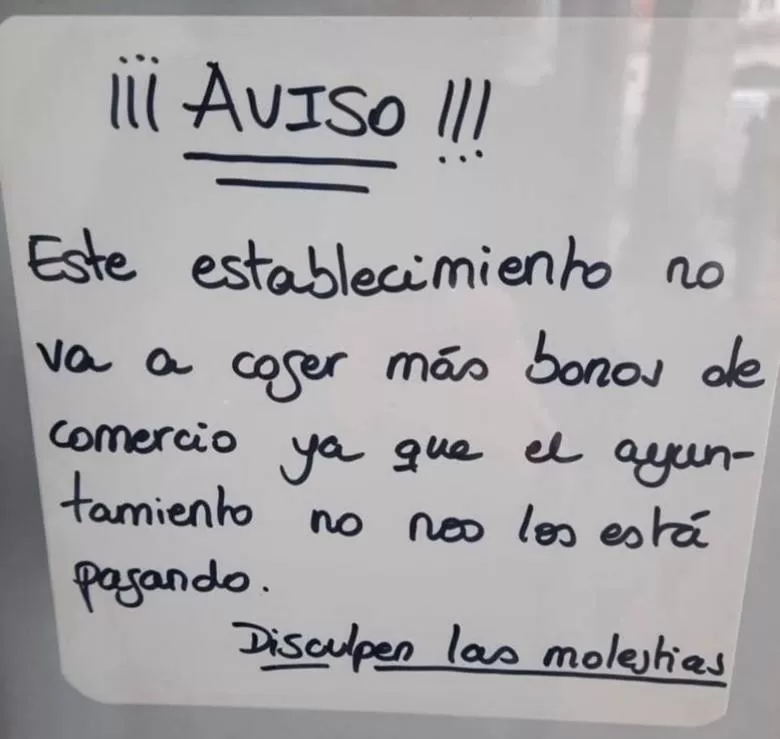 ¡¡¡ AVISO !!!
Este establecimiento no
va a coger más bonos de
comercio ya que el ayun-
tamiento no nos los está
pagando.
Disculpen las molestias